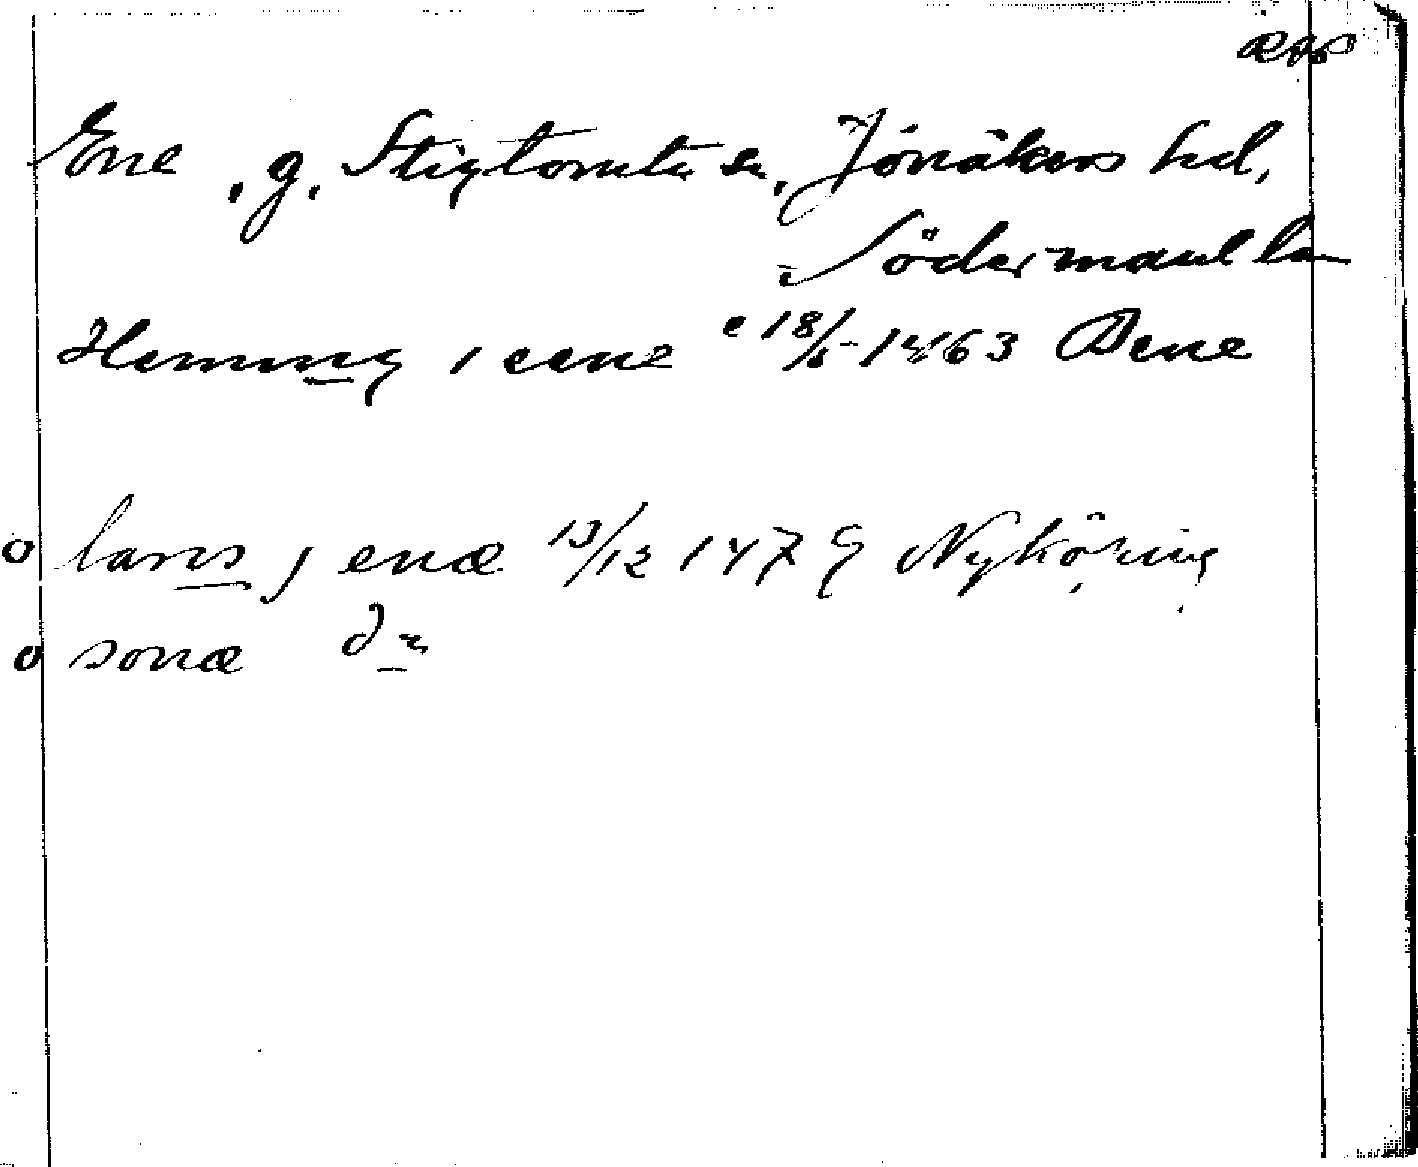 Ene, g. Stigtomta sn, Jönåkers hd,
Södermanl län
Hemming i eene 18/5 1463 Bene
o laris j enæ 13/12 1479 Nyköping
o sonæ do